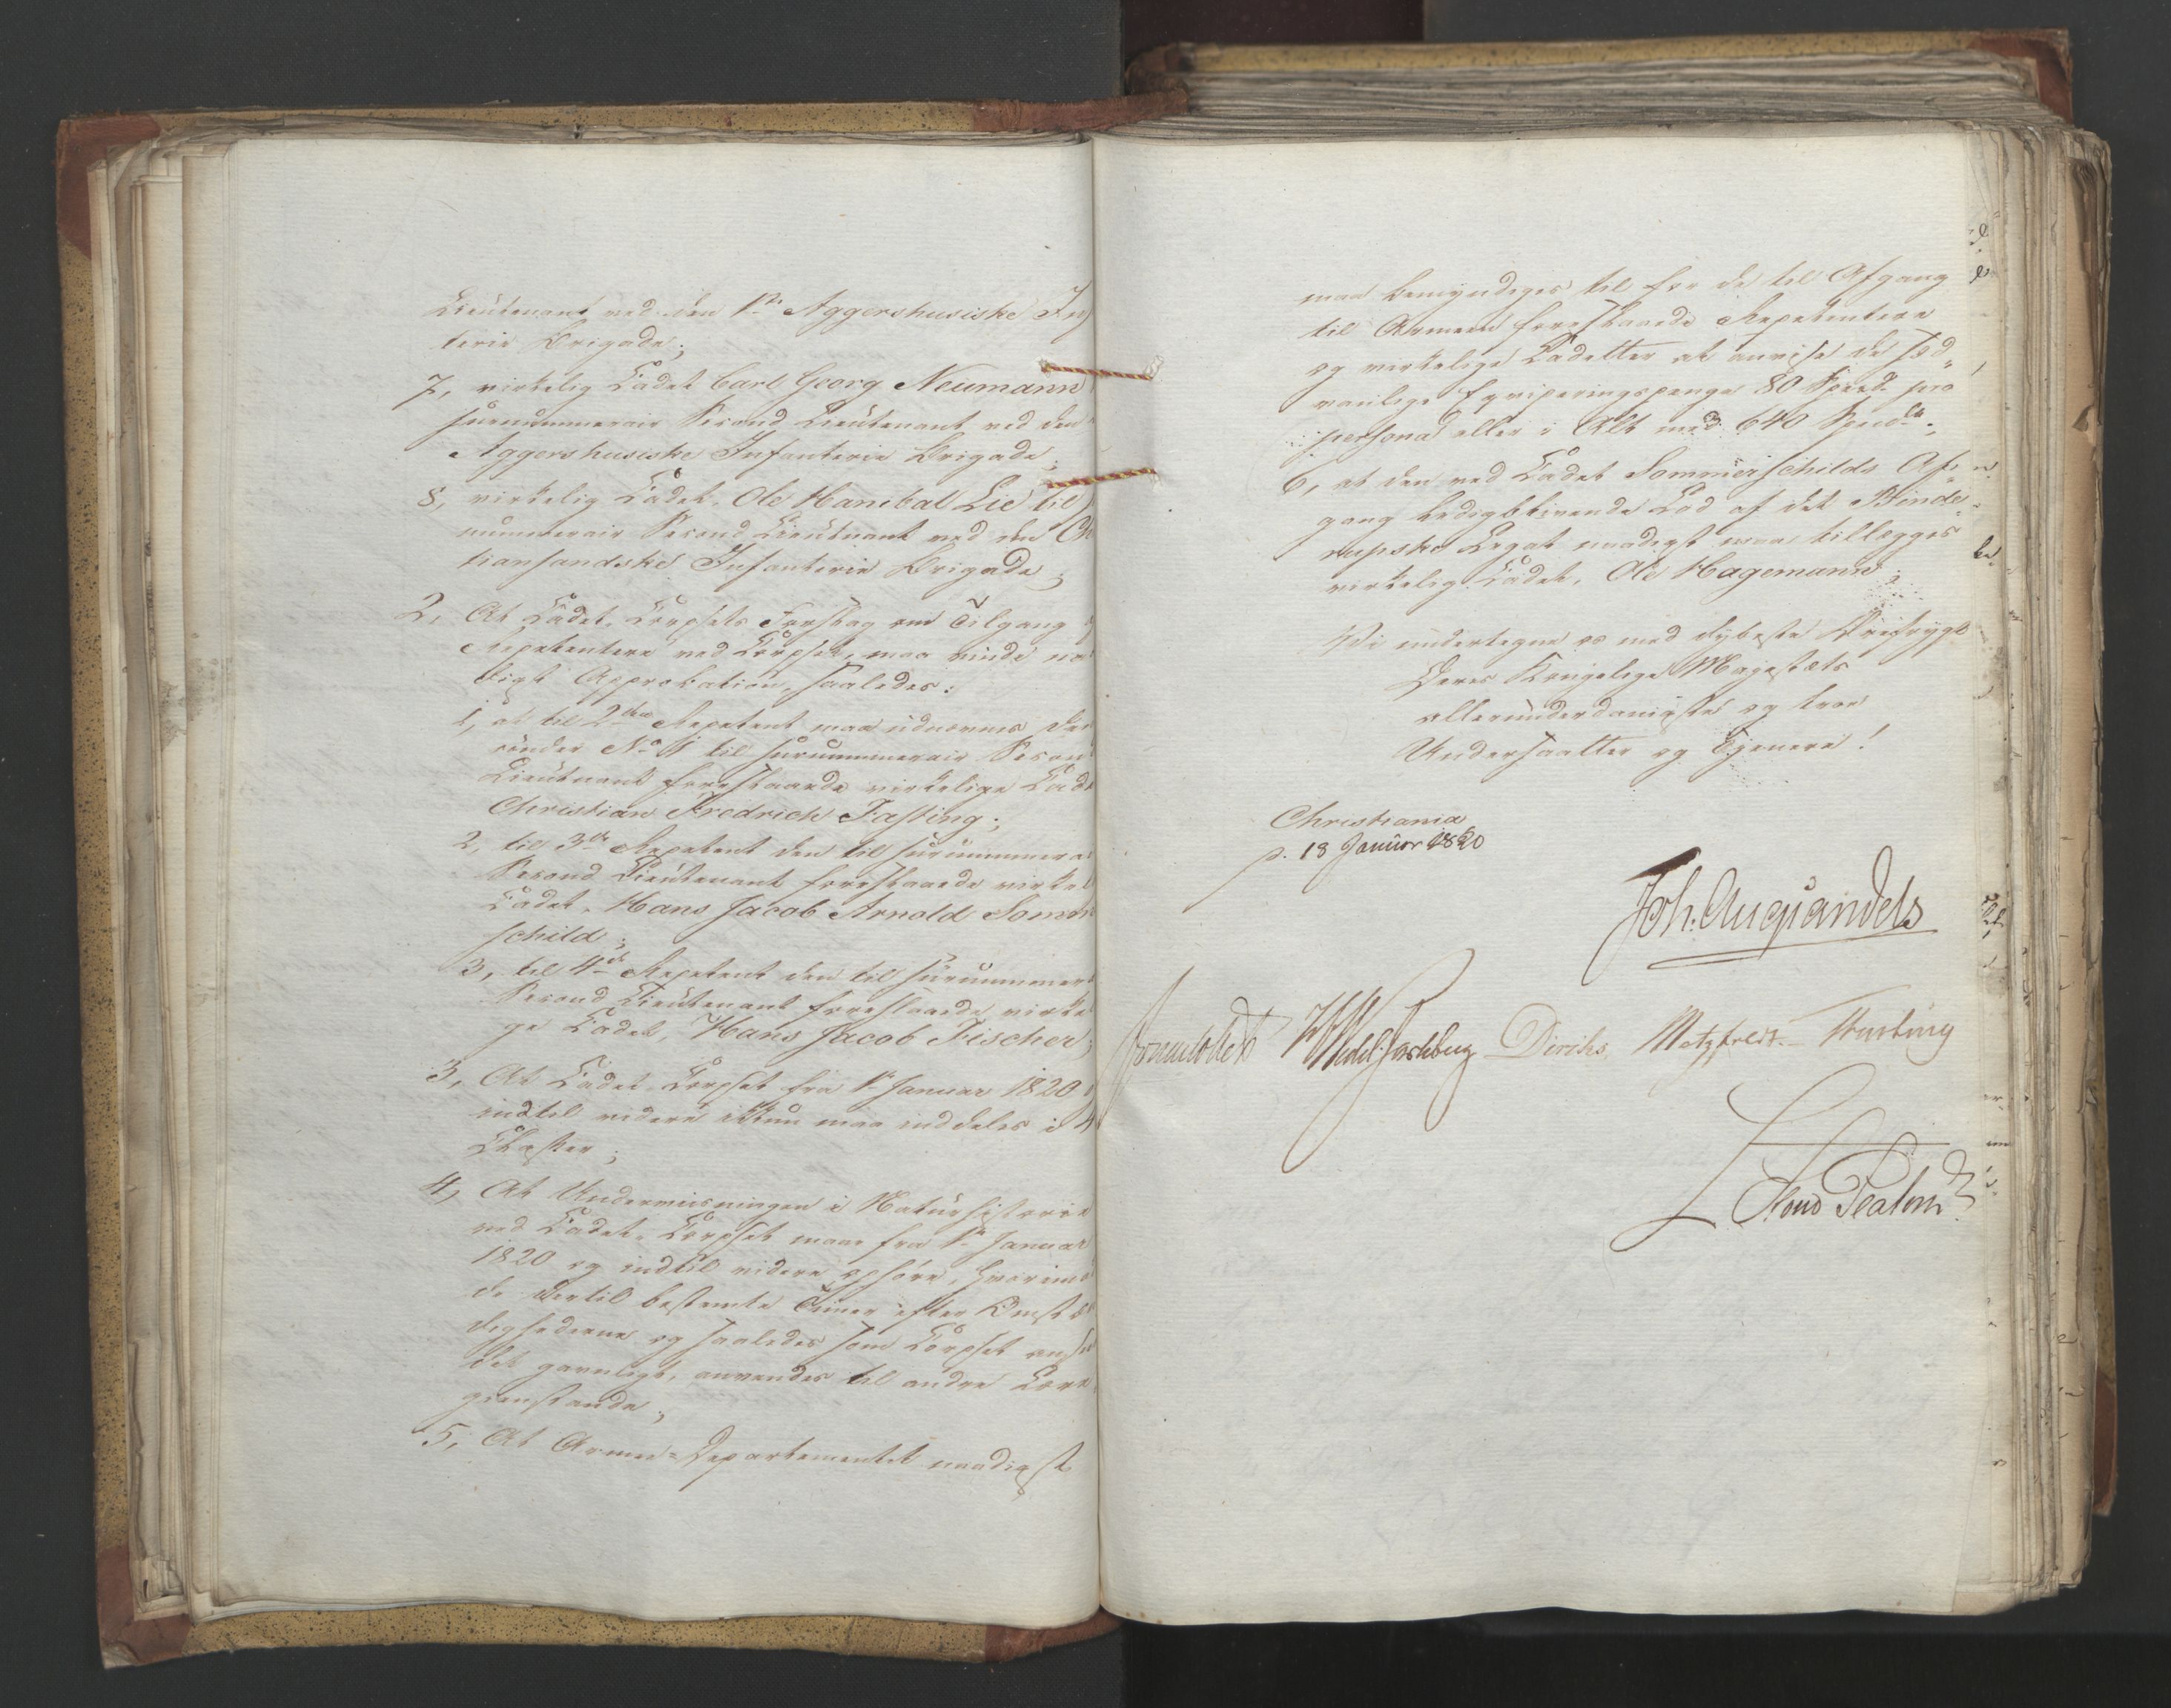 Lieutenant ved den 1ste Aggershusiske In
terie Brigade;
7, virkelig Cadet Carl Georg Neumann
surnummerair Second Lieutenant ved den
Aggershusiske Infanterie Brigade;
8, virkelig Cadet, Ole Hanibal Lie til
nummerair Second Lieutnant ved den Ch
tiansandske Infanterie Brigade;
2, At Cadet-Corpsets Forslag om Tilgang
Repetentere ved Corpset, maa vinde na
digt Approbation, saaledes:
1, at til 2den Repetent maa udnævnes den
under No 1 til surnummerair Second
Lieutnant foreslaaede virkelige Cadet
Christian Fredrich Fasting;
2, til 3de Repetent den til surnummera
Second Lieutenant foreslaaede virkel
Cadet, Hans Jacob Arnold Somm
schild;
3, til 4de Repetent den til surnummer
Second Lieutenant foreslaaede virke
ge Cadet, Hans Jacob Fischer;
3, At Cadet-Corpset fra 1ste Januar 1820
indtil videre ikkun maa inddeles i 4
Classer;
4, At Underviisningen i Naturhistorie
ved Cadet-Corpset maae fra 1ste Januar
1820 og indtil videre ophøre, hvorimod
de dertil bestemte Timer efter Omstæn
dighederne og saaledes som Corpset anse
det gavnligt, anvendes til andre Lære
gienstande;
5, At Armee-Departementet naadigst
maa bemyndiges til for de til Afgang
til Armeen foreslaaede Repetentere
og virkelige Cadetter at anvise de sæd
vanlige Eqviperingspenge 80 Specd pro
persona eller i Alt med 640 Specd;
6, at den ved Cadet Sommerschilds Af
gang ledigblivende Lod af det Binde
rupske Legat naadigst maa tillægges
virkelig Cadet, Ole Hagemann;
Vi undertegne os med dybeste Ærefrygt
Deres Kongelige Majestæts
allerunderdanigste og troe
Undersaatter og Tjenere!
Christiania
d. 13 Januar 1820
Joh. Aug Sandels
Sommerhielm WWedelJarlsberg Diriks. Motzfeldt. Fasting